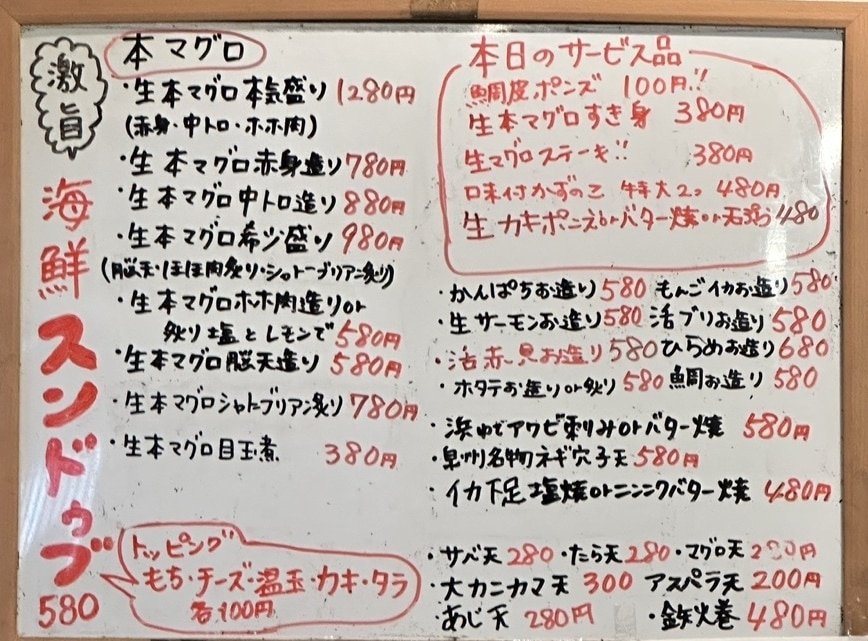 激旨
海鮮スンドゥブ
580
本マグロ
・生本マグロ本気盛り 1280円
(赤身・中トロ・ホホ肉)
・生本マグロ赤身造り 780円
・生本マグロ中トロ造り 880円
・生本マグロ希少盛り 980円
(脳天・ほほ肉炙り・シャトーブリアン炙り)
・生本マグロホホ肉造りor
炙り塩とレモンで 580円
・生本マグロ脳天造り 580円
・生本マグロシャトブリアン炙り 780円
・生本マグロ目玉煮 380円
トッピング
もち・チーズ・温玉・カキ・タラ
各100円
本日のサービス品
鯛皮ポンズ 100円!!
生本マグロすき身 380円
生マグロステーキ!! 380円
味付かずのこ 特大2コ 480円
生カキポン酢orバター焼or天ぷら 480
・かんぱちお造り 580 もんごイカお造り 580
・生サーモンお造り 580 活ブリお造り 580
・活赤貝お造り 580 ひらめお造り 680
・ホタテお造りor炙り 580 鯛お造り 580
・浜ゆでアワビ刺みorバター焼 580円
・泉州名物ネギ穴子天 580円
・イカ下足塩焼orニンニクバター焼 480円
・サバ天 280・たら天 280・マグロ天 280円
・大カニカマ天 300 アスパラ天 200円
・あじ天 280円 ・鉄火巻 480円